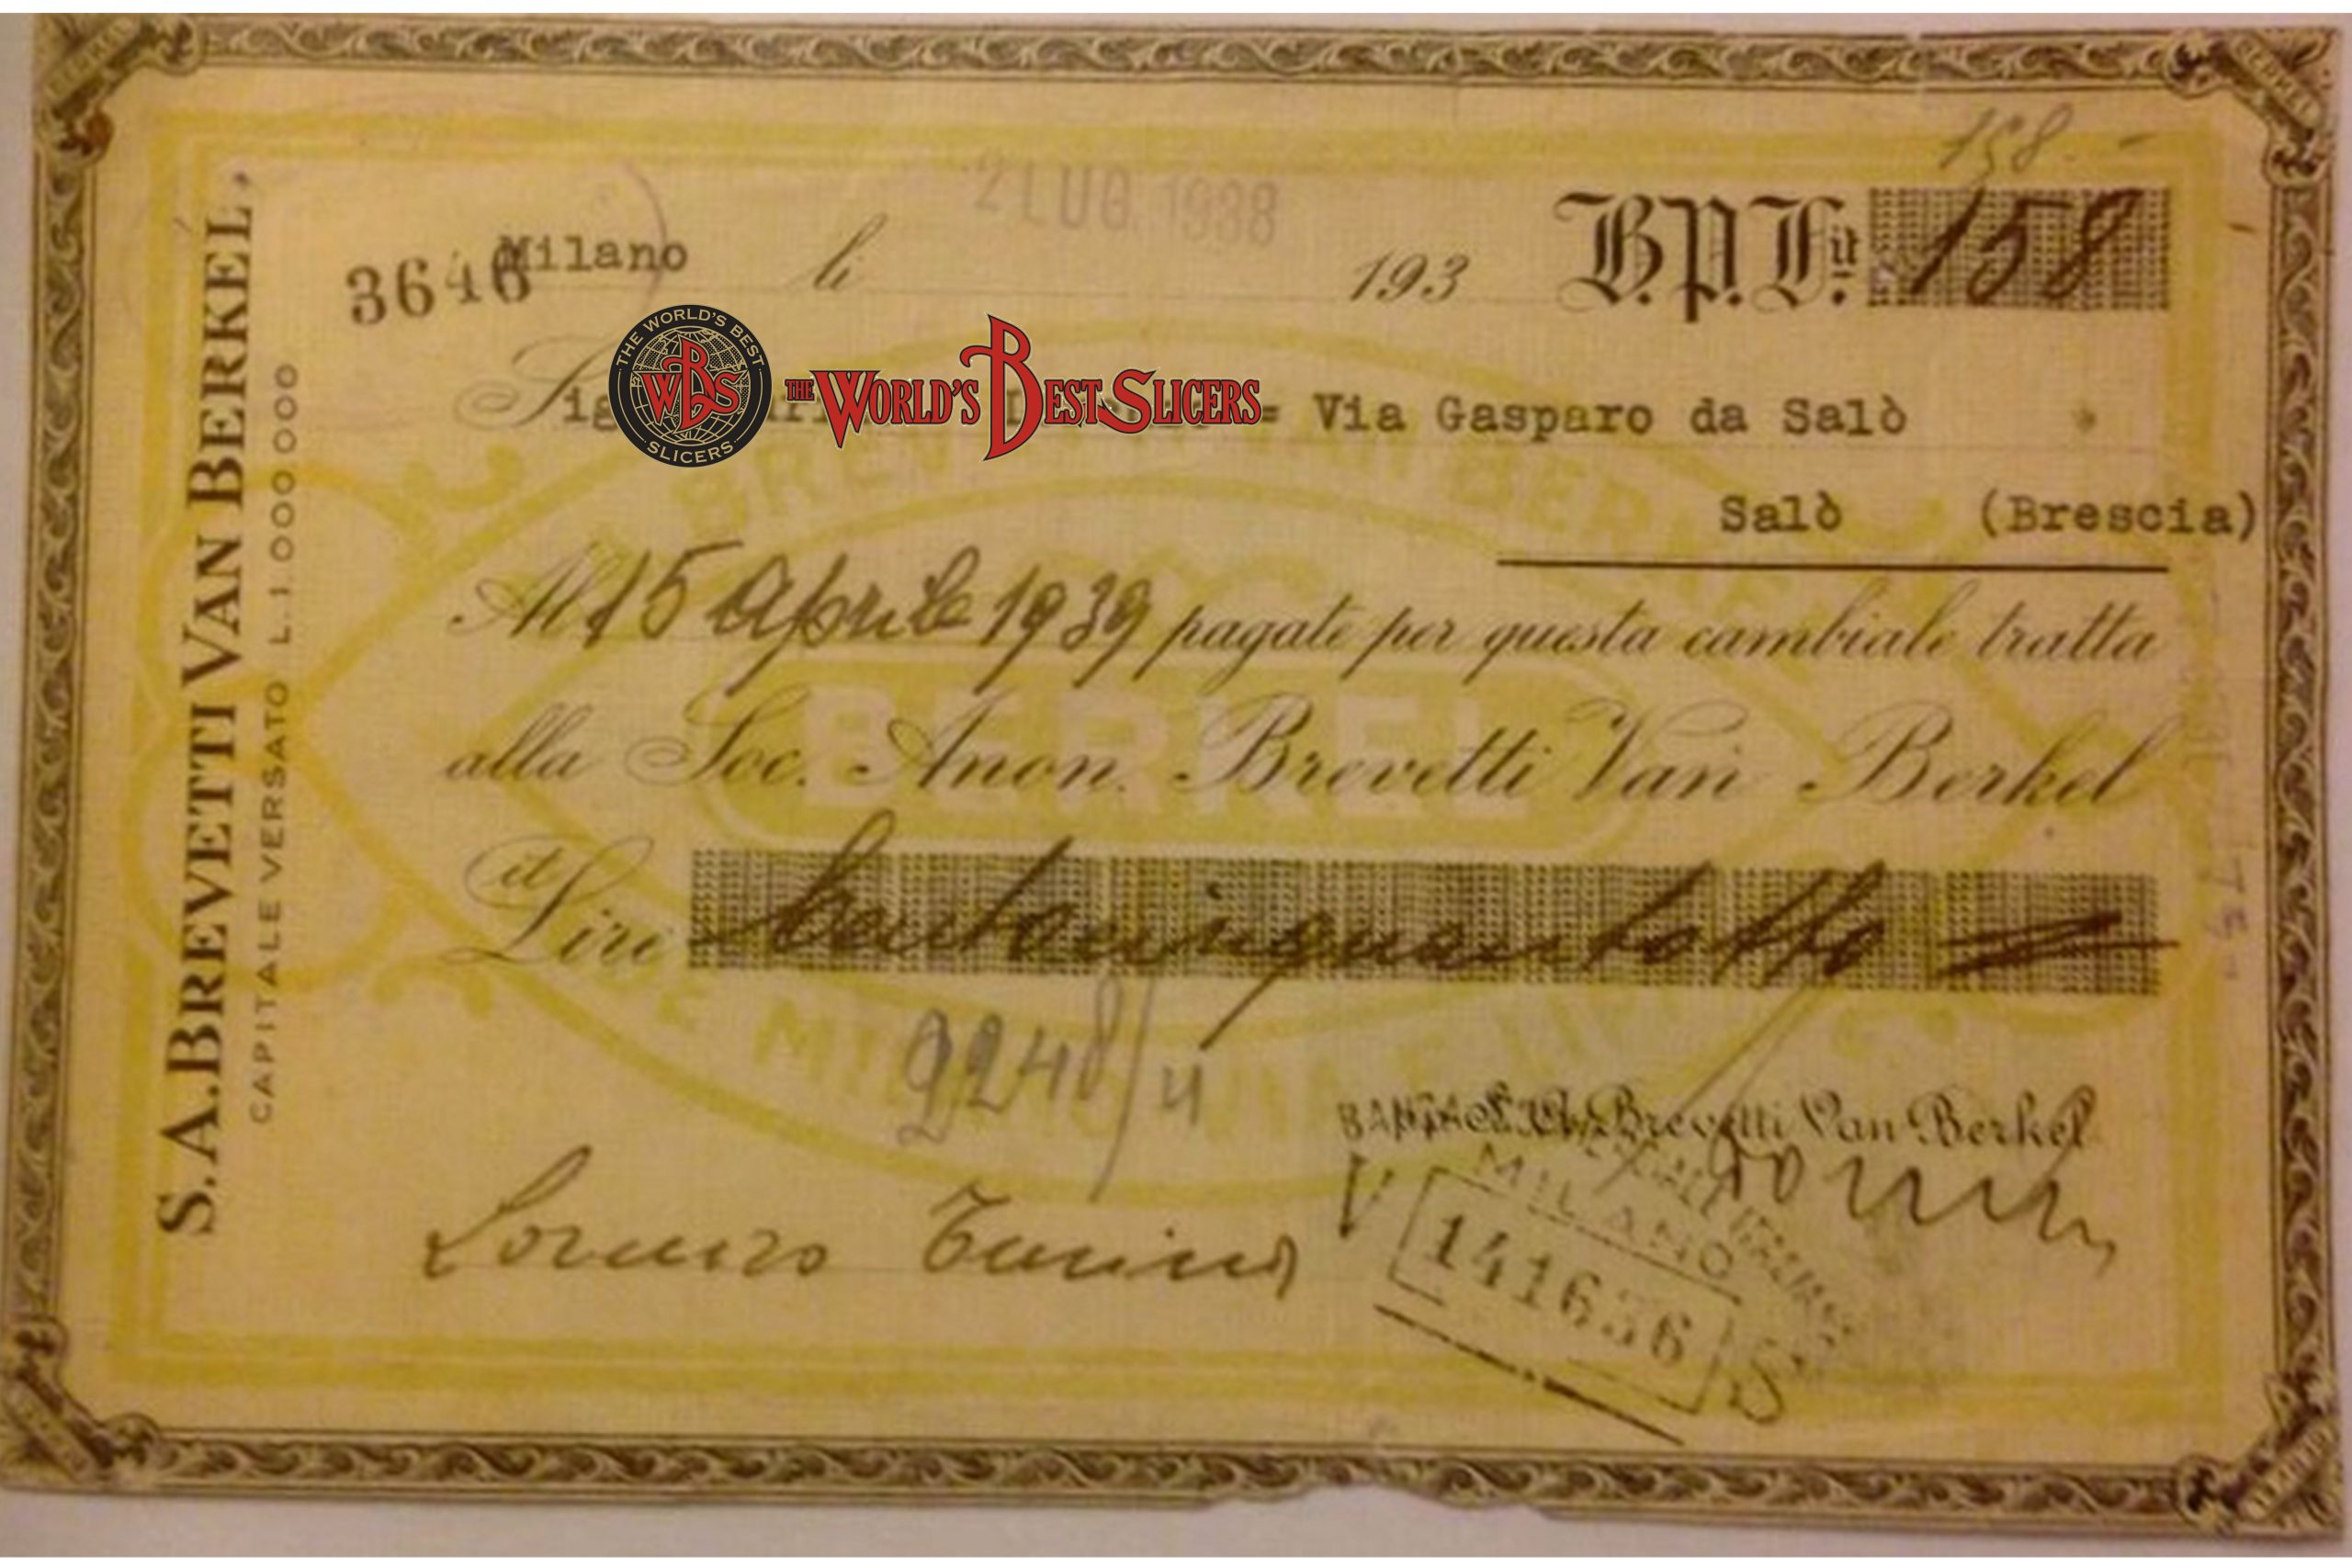 158.-
2 LUG. 1938
3646 Milano li 193 B.P. Lit. 158
THE WORLD'S BEST SLICERS
WBS
THE WORLD'S BEST SLICERS
Sig = Via Gasparo da Salò
Salò (Brescia)
Al 15 Aprile 1939 pagate per questa cambiale tratta
alla Soc. Anon. Brevetti Van Berkel
Lire it centocinquantotto
BERKEL
9248/
S. A. Brevetti Van Berkel
MILANO
V 141636 S
Lorenzo
S. A. BREVETTI VAN BERKEL,
CAPITALE VERSATO L.1.000.000